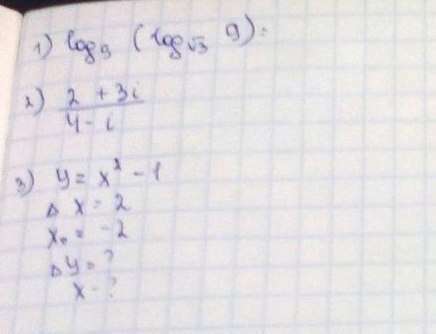 1) log₉ (log√3 9) =
2) 2 + 3i / 4 - i
3) y = x² - 1
Δ x = 2
x₀ = -2
Δ y = ?
x - ?